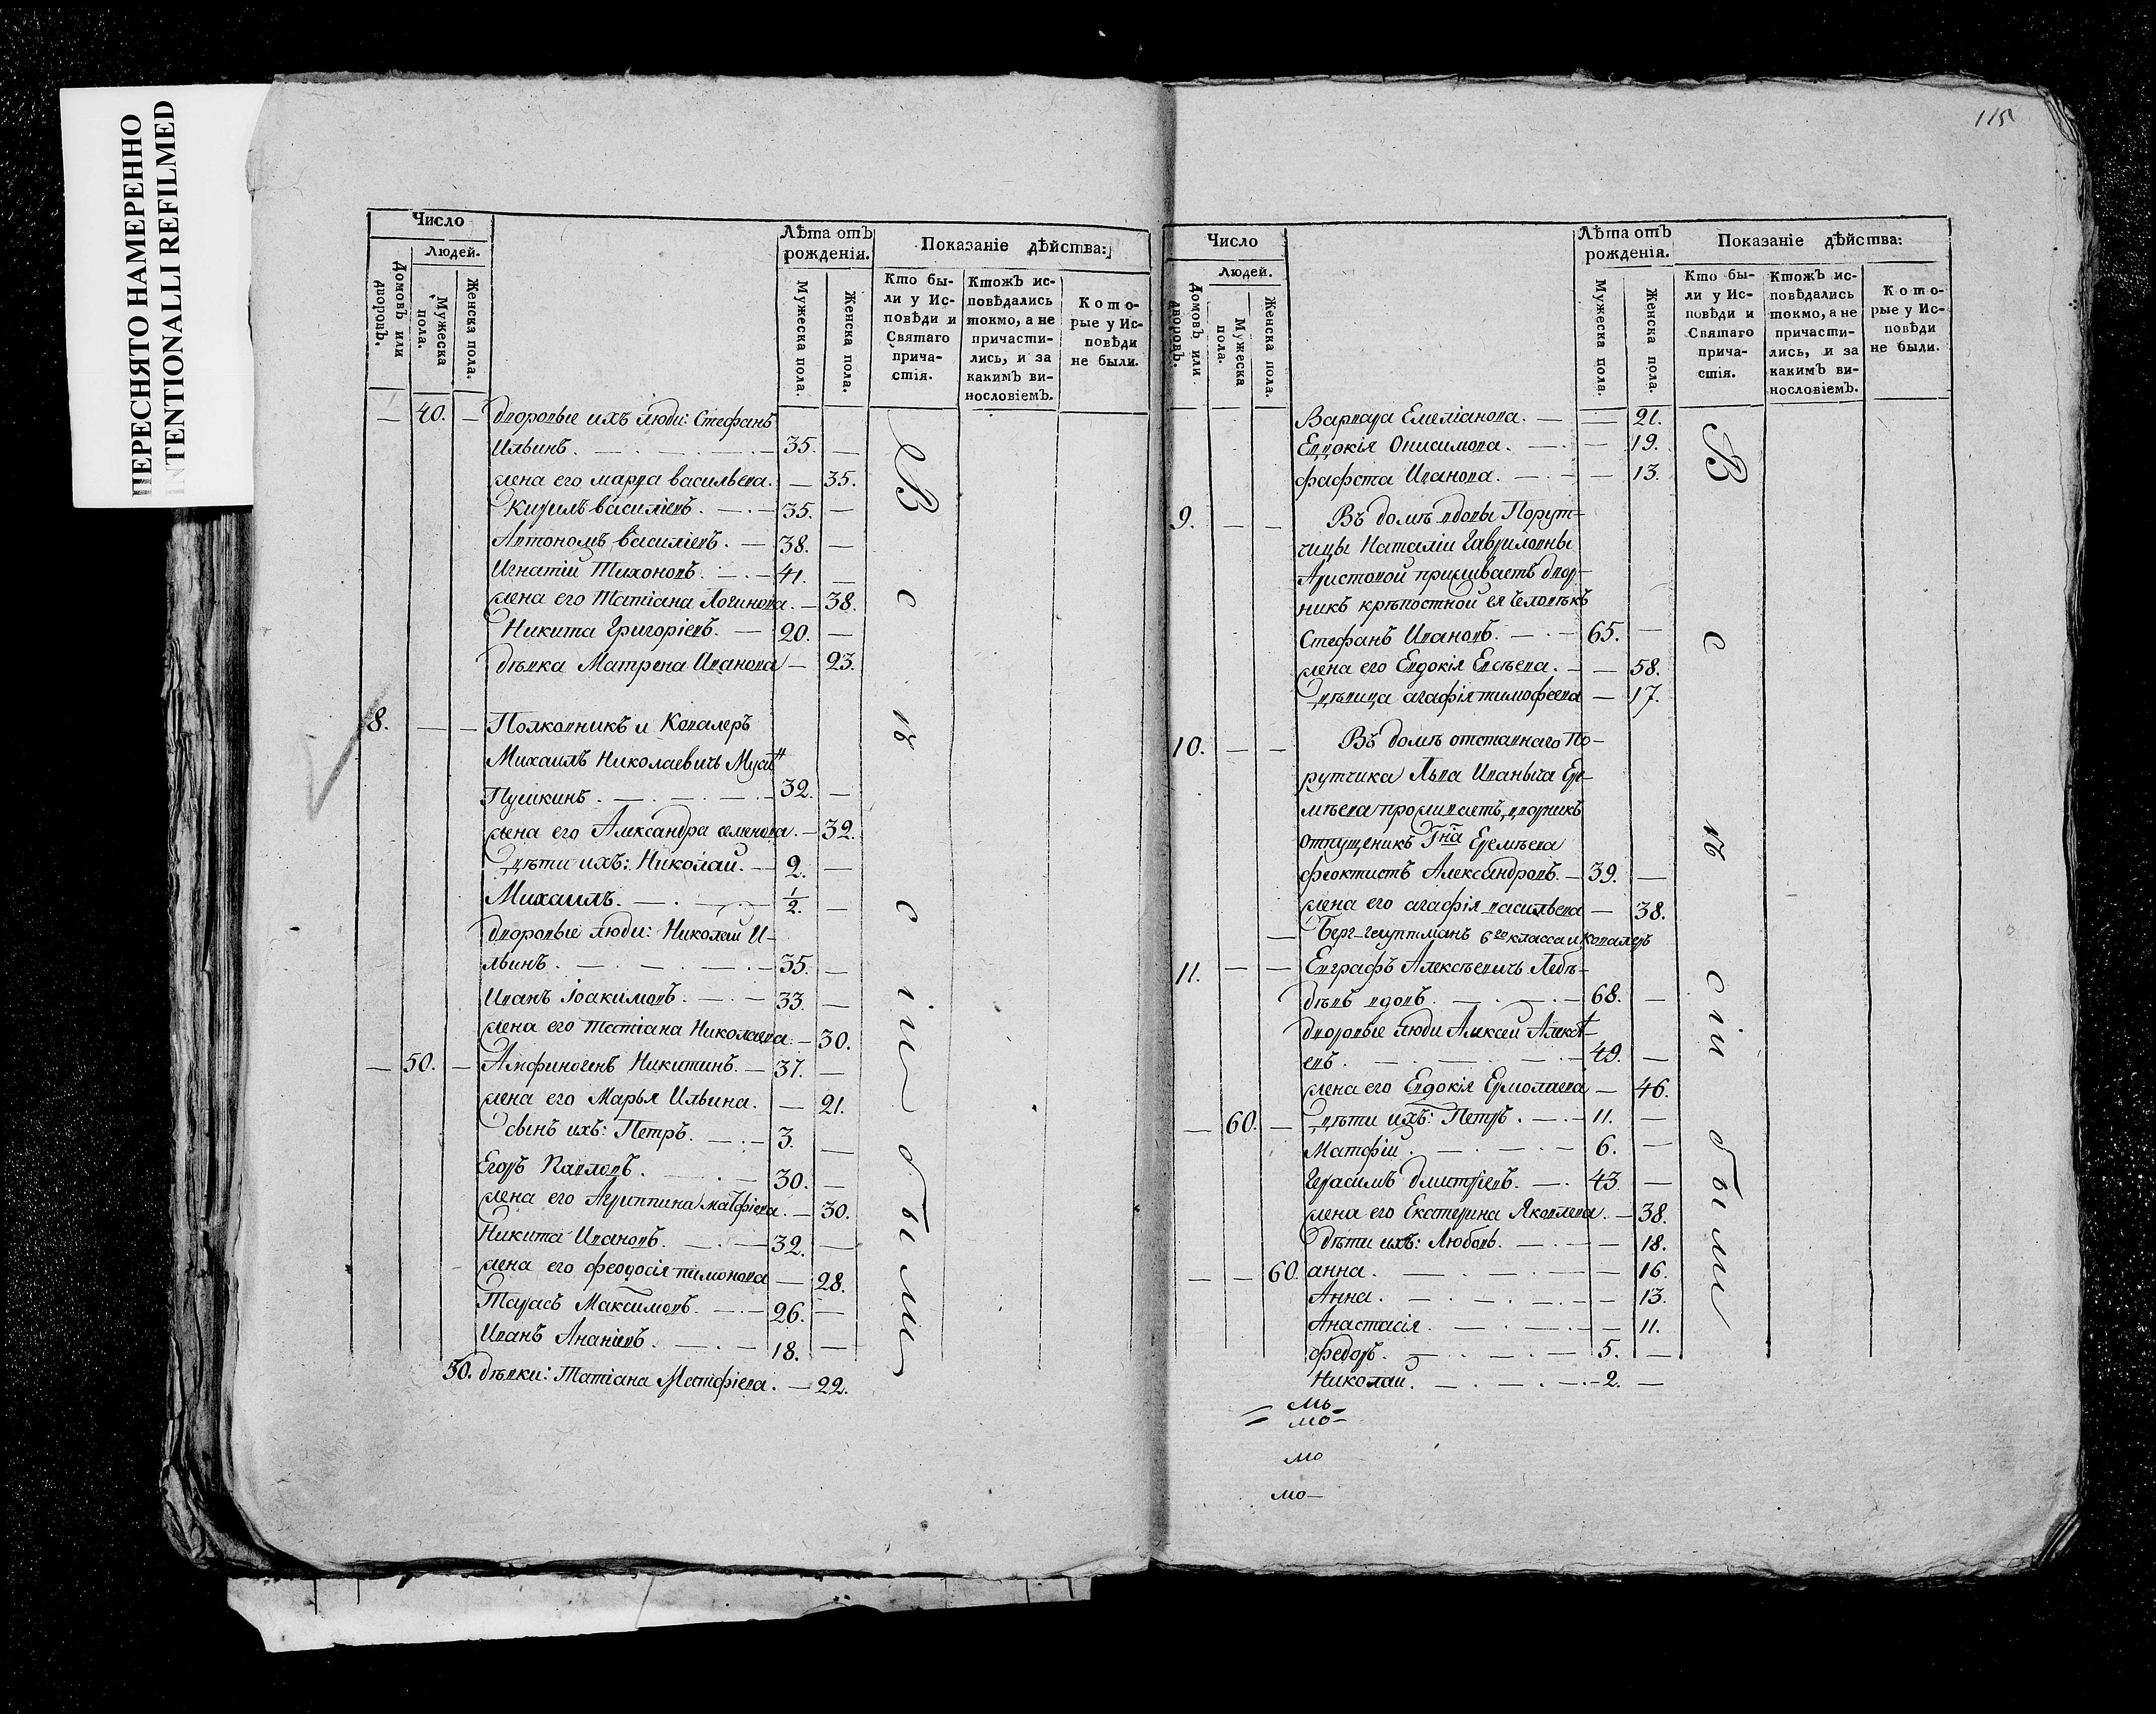 ПЕРЕСНЯТО НАМЕРЕННО
INTENTIONALLI REFILMED
Число
Людей.
Домовъ или дворовъ.
Мужеска пола.
Женска пола.
Лѣта отъ рожденія.
Мужеска пола.
Женска пола.
Показаніе дѣйства:
Кто были у Исповѣди и Святаго причастія.
Ктожъ исповѣдались токмо, а не причастились, и за какимъ винословіемъ.
Которые у Исповѣди не были.
— 40. — дворовые ихъ люди: Стефанъ
Ильинъ. — 35. —
жена его марѳа васильева. — 35.
Кирилъ василіевъ. — 35. —
Автономъ василіевъ. — 38. —
Игнатій Тихоновъ. — 41. —
жена его Татіана Логинова. — 38.
Никита Григоріевъ. — 20. —
дѣвка Матрена Иванова — 23.
8. — — Полковникъ и Кавалеръ
Михаилъ Николаевичь Мусин
Пушкинъ. — 32. —
жена его Александра семенова. — 32.
дѣти ихъ: Николай. — 2. —
Михаилъ. — 1/2. —
дворовые люди: Николай И-
льинъ. — 35. —
Иванъ Іоакимовъ. — 33. —
жена его Татіана Николаева. — 30.
— 50. — Анфиногенъ Никитинъ. — 37. —
жена его Марья Ильина. — 21.
сынъ ихъ: Петръ. — 3. —
Егоръ Павловъ. — 30. —
жена его Агриппина матфіева. — 30.
Никита Ивановъ. — 32. —
жена его феодосія тимонова — 28.
Тарасъ Максимовъ. — 26. —
Иванъ Ананіевъ. — 18. —
50. дѣвки: Татіана Матфіева. — 22.
Всѣ сіи были
115
Число
Людей.
Домовъ или дворовъ.
Мужеска пола.
Женска пола.
Лѣта отъ рожденія.
Мужеска пола.
Женска пола.
Показаніе дѣйства:
Кто были у Исповѣди и Святаго причастія.
Ктожъ исповѣдались токмо, а не причастились, и за какимъ винословіемъ.
Которые у Исповѣди не были.
Варвара Емеліанова. — — 21.
Евдокія Онисимова. — — 19.
Иванова. — — 13.
9. — — Въ домѣ вдовы Порут-
чицы Наталіи Гавриловны
Аристовой проживаетъ двор-
никъ крѣпостной ея человѣкъ
Стефанъ Ивановъ. — 65. —
жена его Евдокія Евсѣева. — — 58.
дѣвица агафія тимофеева — 17.
10. — — Въ домѣ отставнаго По-
рутчика Льва Иваныча Ере-
мѣева проживаетъ дворникъ
отпущеникъ Гна Еремѣева
феоктистъ Александровъ. — 39. —
жена его агафія васильева — 38.
— Берг-гауптманъ 6го класса и кавалеръ
11. — — Евграфъ Алексѣевичъ Лебе-
девъ вдовъ. — 68. —
дворовые люди Алексей Алексѣ-
евъ. — 49. —
жена его Евдокія Ермолаева — 46.
— 60. — дѣти ихъ: Петръ. — 11. —
Матфій. — 6. —
Герасимъ дмитріевъ. — 43. —
жена его Екатерина Яковлева. — 38.
дѣти ихъ: Любовь. — — 18.
— — 60. анна. — — 16.
Анна. — — 13.
Анастасія. — — 11.
федоръ. — 5. —
Николай. — 2. —
Всѣ сіи были
мо
мо
мо